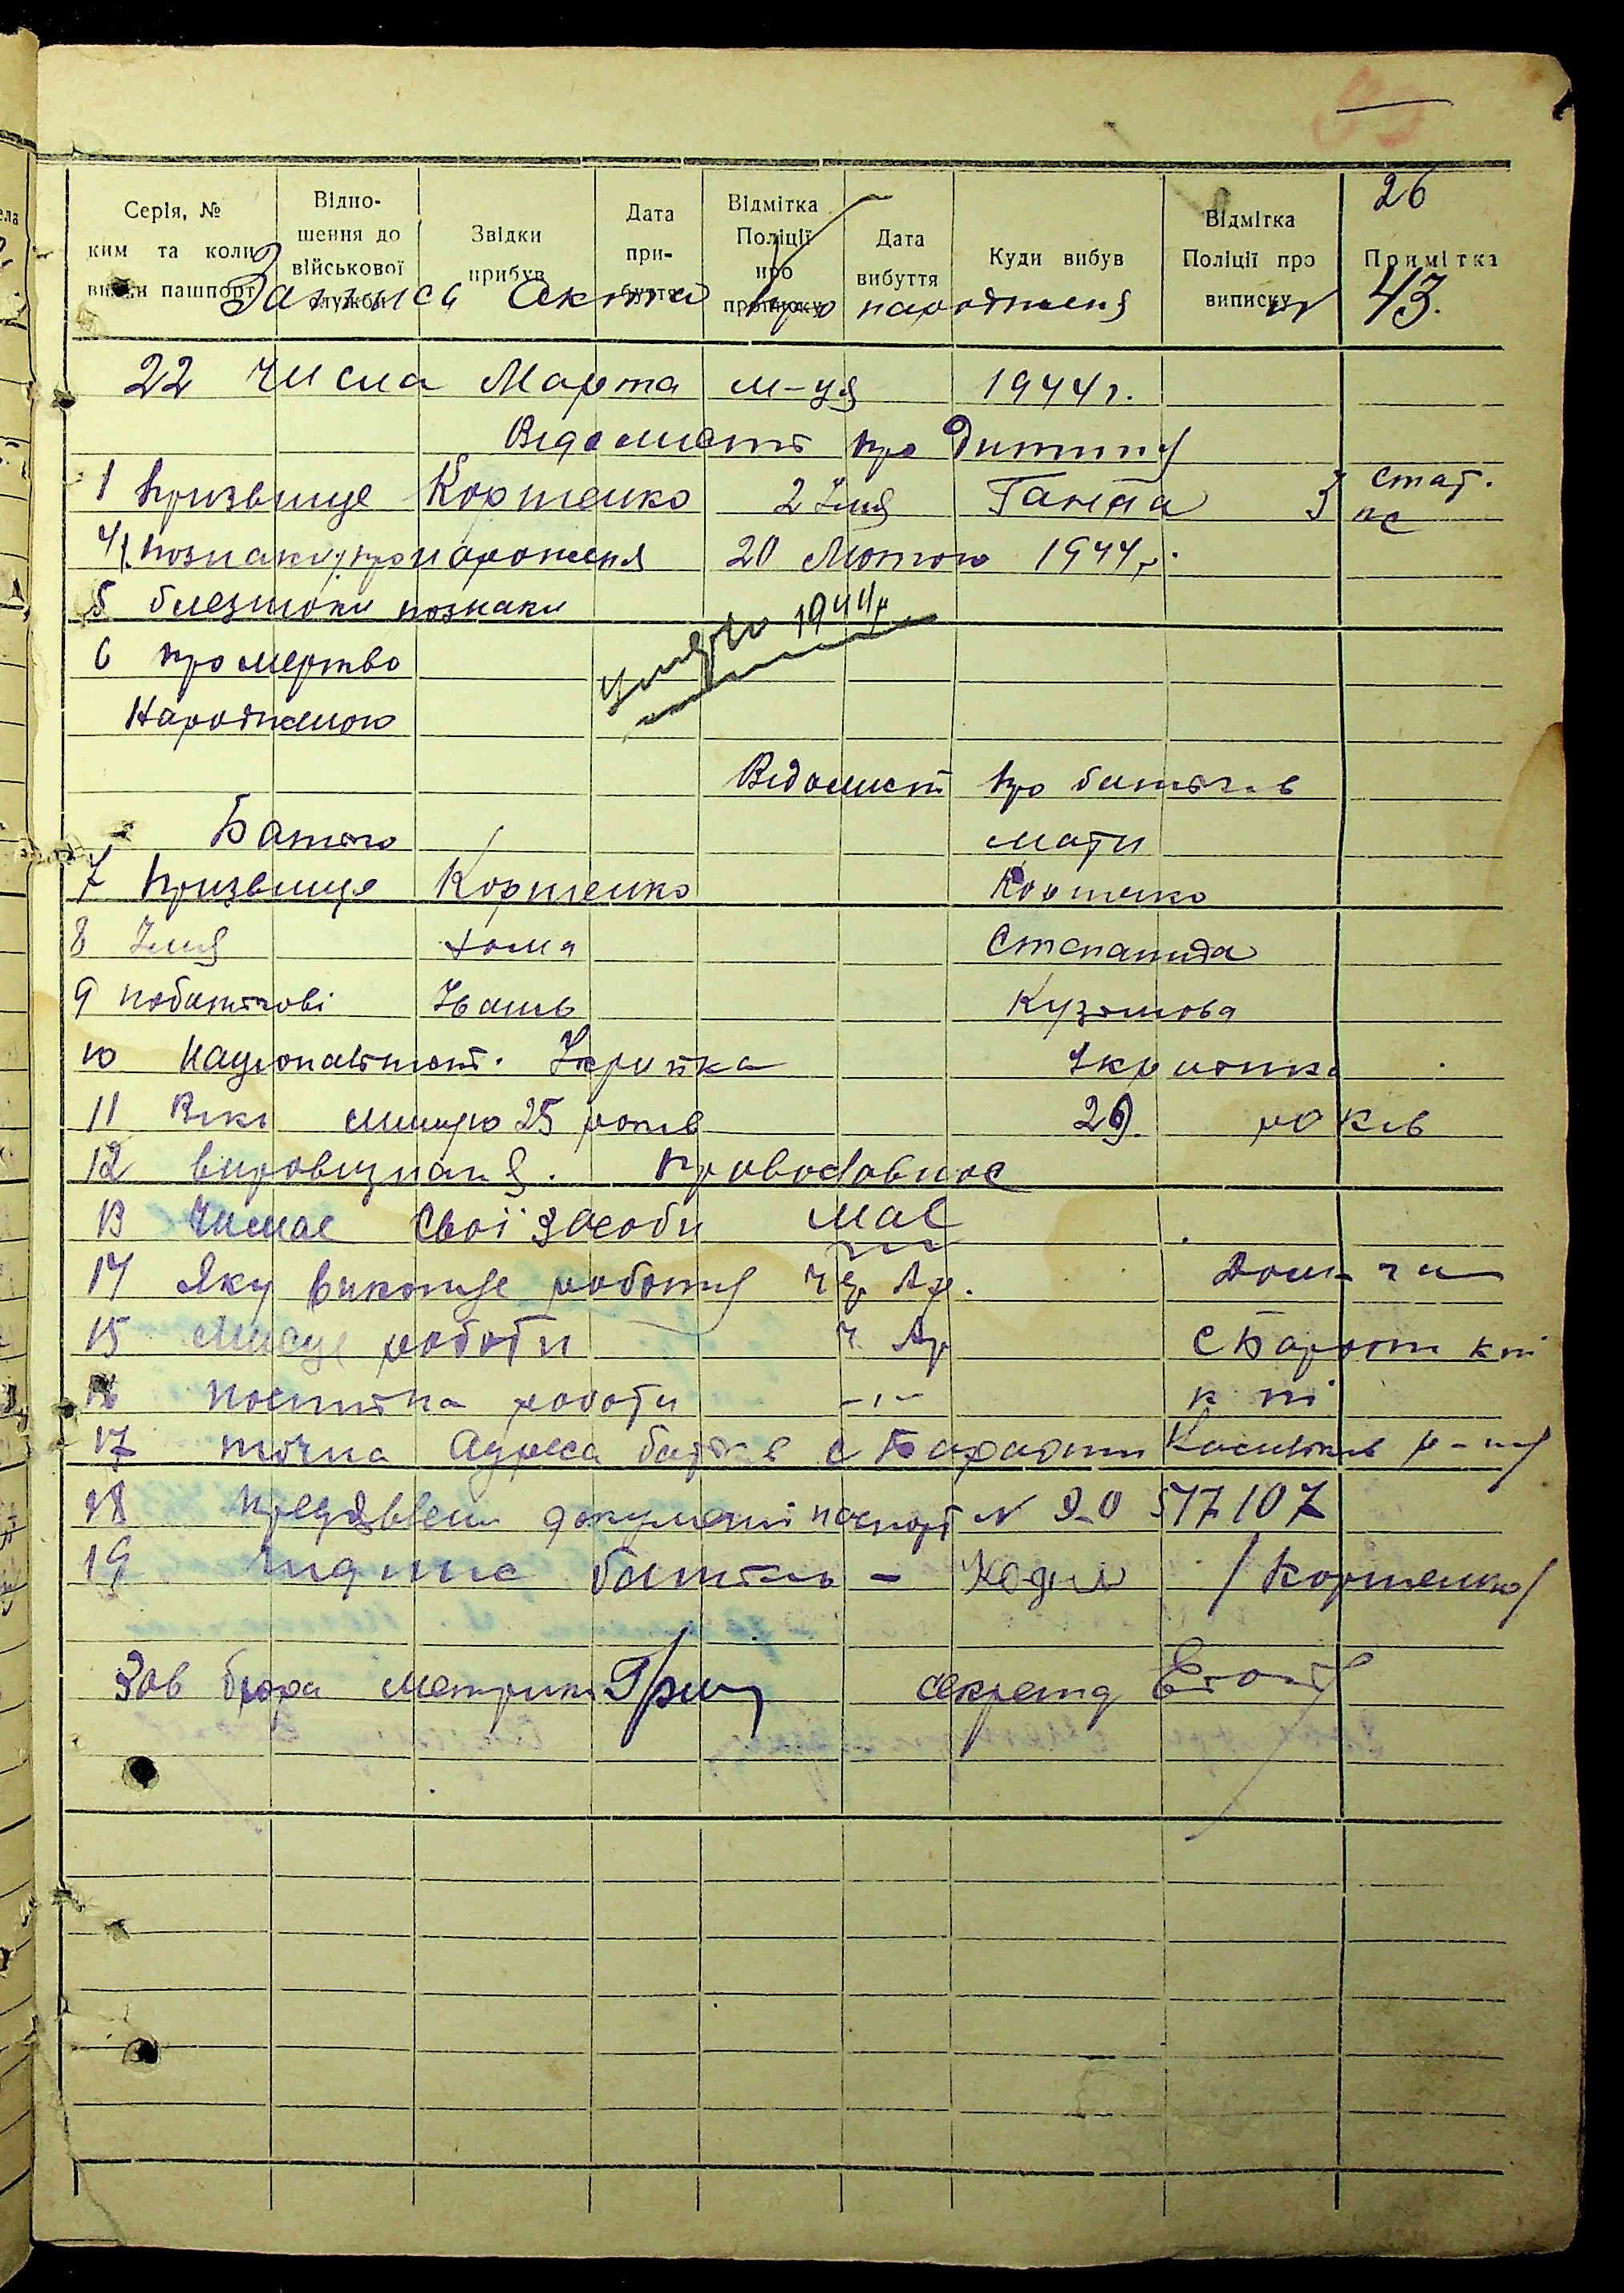 26
Серія, № ким та коли видан пашпорт
Відношення до військової служби
Звідки прибув
Дата прибуття
Відмітка Поліції про прописку
Дата вибуття
Куди вибув
Відмітка Поліції про виписку
Примітка
Запись Акта про народженя № 43.
22 числа Марта м-ця 1944 г.
Відомисть про Дитину
1 призвище Корженко 2 Імя Ганна 3 стат.
4. познаки про народженя 20 Лютого 1944 р.
5 близнюки познаки
1944р
6 про мертво
Народженого
Відомист про батьків
Батько мати
7 призвище Корженко Корженко
8 Імя Хома Степанида
9 побатькові Іванів Кузьмова
10 Національност.
11 Вікі минуло 25 років 29 років
12 вировизнаня. провославноє
13 Чимає Свої Засоби має
14 Яку виконує роботу
15 Мисце роботи
16 роботи -"-
17 точна Адреса батьків с р-ну
18 документ паспорт № 577107
19 підпис батьків - /Корженко/
Зав бюра метрик секретар